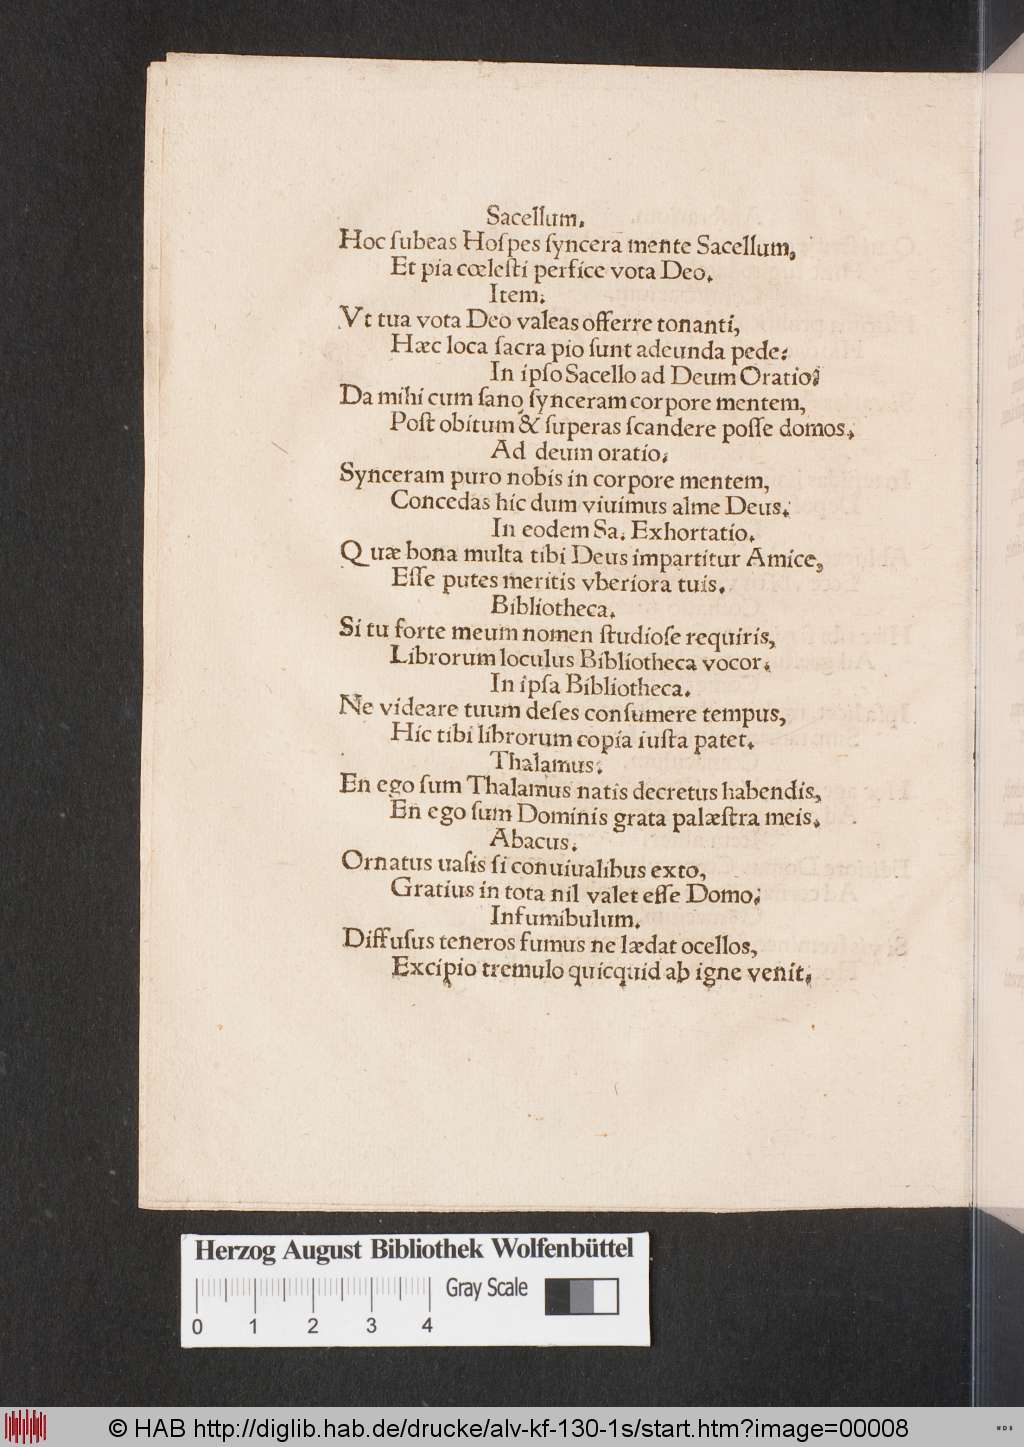 Sacellum.
Hoc ſubeas Hoſpes ſyncera mente Sacellum,
Et pia cœleſti perfice vota Deo.
Item.
Vt tua vota Deo valeas offerre tonanti,
Hæc loca ſacra pio ſunt adeunda pede.
In ipſo Sacello ad Deum Oratio.
Da mihi cum ſano ſynceram corpore mentem,
Poſt obitum & ſuperas ſcandere poſſe domos.
Ad deum oratio.
Synceram puro nobis in corpore mentem,
Concedas hic dum viuimus alme Deus.
In eodem Sa. Exhortatio.
Quæ bona multa tibi Deus impartitur Amice,
Eſſe putes meritis vberiora tuis.
Bibliotheca.
Si tu forte meum nomen ſtudioſe requiris,
Librorum loculus Bibliotheca vocor.
In ipſa Bibliotheca.
Ne videare tuum deſes conſumere tempus,
Hic tibi librorum copia iuſta patet.
Thalamus.
En ego ſum Thalamus natis decretus habendis,
En ego ſum Dominis grata palæſtra meis.
Abacus.
Ornatus uaſis ſi conuiualibus exto,
Gratius in tota nil valet eſſe Domo.
Infumibulum.
Diffuſus teneros fumus ne lædat ocellos,
Excipio tremulo quicquid ab igne venit.
Herzog August Bibliothek Wolfenbüttel
Gray Scale
0 1 2 3 4
© HAB http://diglib.hab.de/drucke/alv-kf-130-1s/start.htm?image=00008